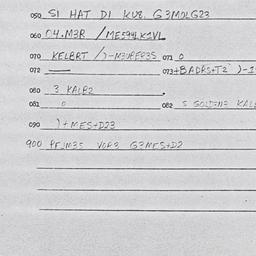 050 SI HAT DI KU8. G3M0LG23
060 04.M3R /ME594LK1VL
070 KELBRT /)-M3URER3S 071 0
072 — 073+BADRS+T2 )-1
080 3 KALB2 .
081 0 082 5 GOLD2N3 KAL
090 )+MES+D23
900 PFJM3S VOR3 G3MES+D2